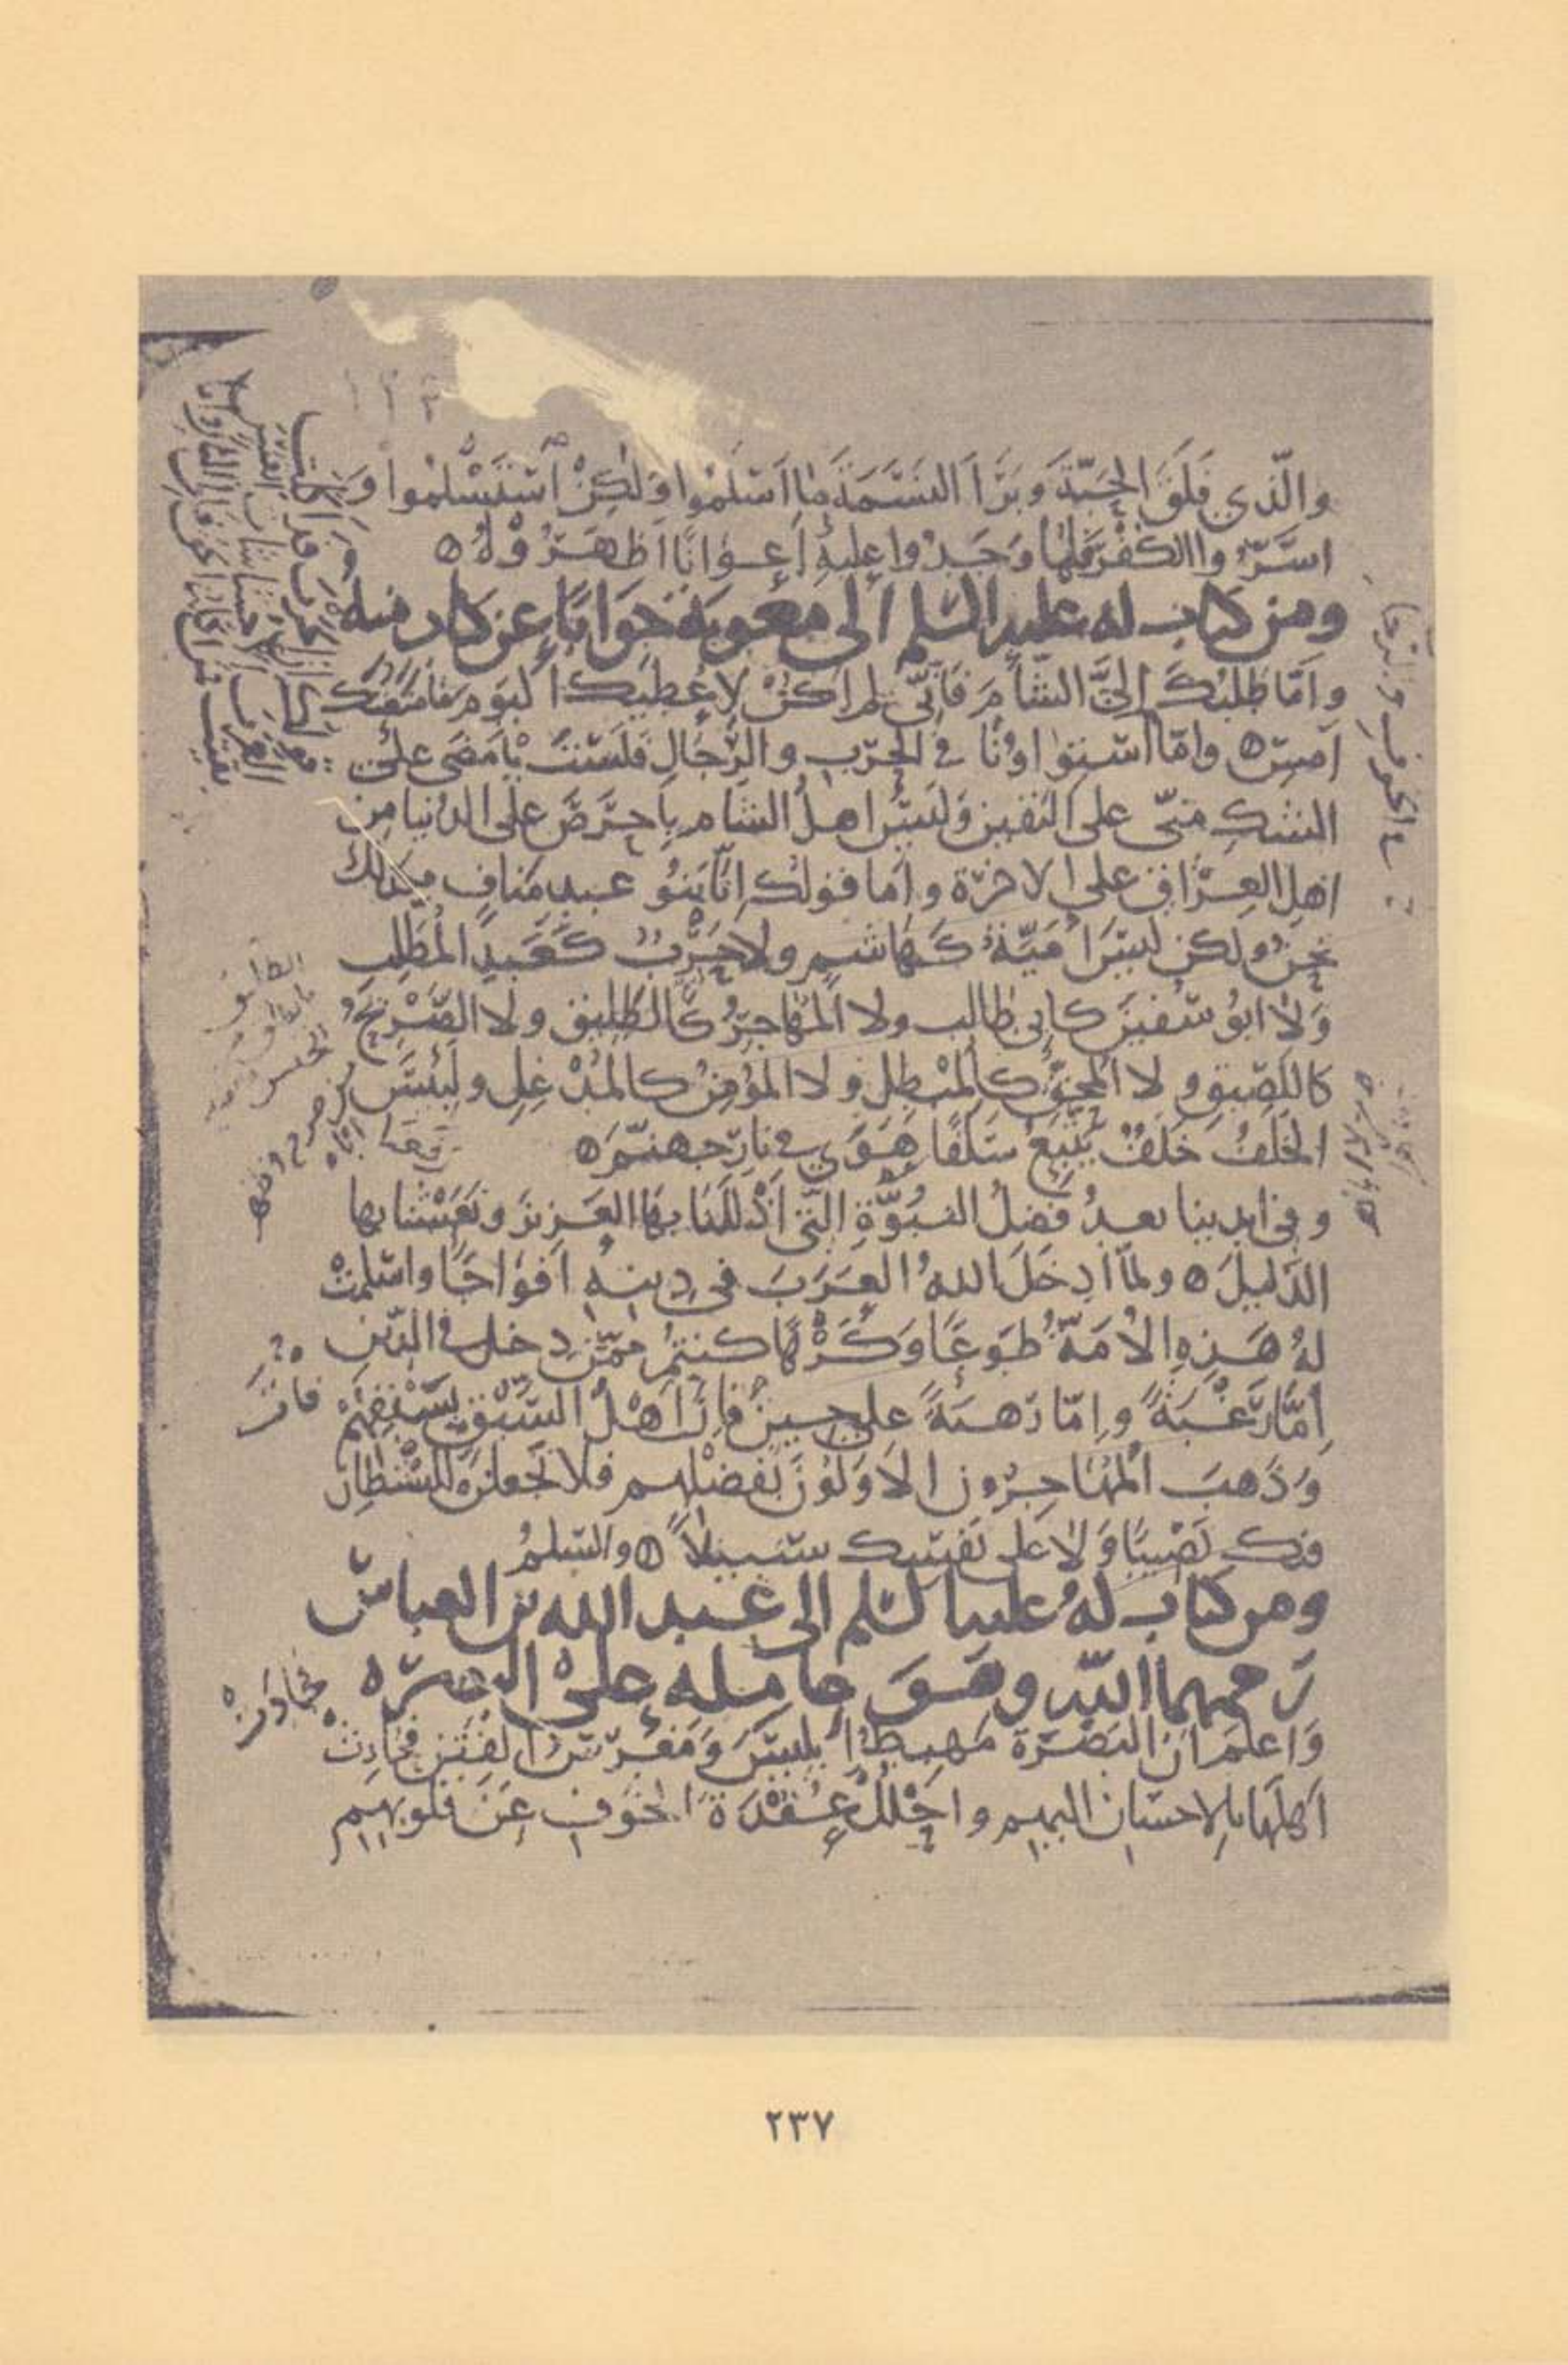 والّذي فَلَقَ الحَبّةَ وبَرَأَ النسَمَةَ ما اَسْلَمُوا وَلكِنْ اسْتَسْلَموا وَ
اسَرّوا الكُفْرَ فَلمّا وَجَدُوا عليهِ اَعوانًا اَظهَرُوْهُ ۝
ومن كتاب له عليه السلم الى معوية جَوَابًا عن كتاب منه
وامّا طلبُكَ اِليَّ الشّامَ فَاِنّي لم اَكُنْ لاُعطِيَكَ اليومَ مَا مَنَعْتُكَ
اَمسِ ۝ وامّا استواؤنا في الحرب والرّجالِ فَلَسْتَ بِاَمضى على
الشكِ منّي على اليقين وَليسَ اهلُ الشام بِاَحرَصَ على الدنيا مِن
اهلِ العراقِ على الاخرة واَما قولُكَ اِنّا بَنُو عبدِ مَنافٍ فكذلك
نحنُ ولكن ليسَ اُمَيّةُ كَهاشمٍ ولا حَرْبٌ كَعَبدِ المُطَّلِبِ
وَلا ابُو سُفينَ كابي طالب ولا المُهاجِرُ كَالطَّلِيقِ ولا الصَّرِيحُ
كاللَّصِيقِ ولا المُحِقُّ كالمُبْطِلِ ولا المُؤمِنُ كالمُدْغِلِ ولَبِئْسَ
الخَلَفُ خَلَفٌ يَتْبَعُ سَلَفًا هَوَى في نارِ جهنّمَ ۝
وفي ايدينا بعدُ فضلُ النُبُوّةِ الّتي اَذْلَلْنَا بِهَا العَزِيزَ ونَعَشْنا بها
الذّليلَ ۝ ولمّا اَدخَلَ اللهُ العَرَبَ في دِينِهِ اَفوَاجًا واسْلمتْ
لهُ هَذِهِ الاُمَّةُ طَوعًا وَكَرْهًا كنتُمْ مِمّن دخل في الدّينِ
اِمّا رَغْبَةً واِمّا رَهبَةً على حِينَ فازَ اَهْلُ السَّبْقِ بِسَبْقِهِمْ
وَذَهبَ المُهَاجِرُون الاَوّلُونَ بفَضْلِهِم فلا تَجعلنَّ للشَّيْطانِ
فيك نَصِيبًا وَلا على نَفسِك سَبِيلاً ۝ والسّلمُ
ومن كتاب لهُ عليه السلم الى عبد الله بن العباس
رَحمهما الله وهو عاملُه على البصرة
وَاعلم انّ البَصْرَةَ مَهبِطُ اِبليسَ وَمَغرِسُ الفِتَنِ فحادِثْ
اَهلَها بالاحسانِ اليهم واحْلُلْ عُقْدَةَ الخوفِ عَن قُلوبهم
٢٣٧